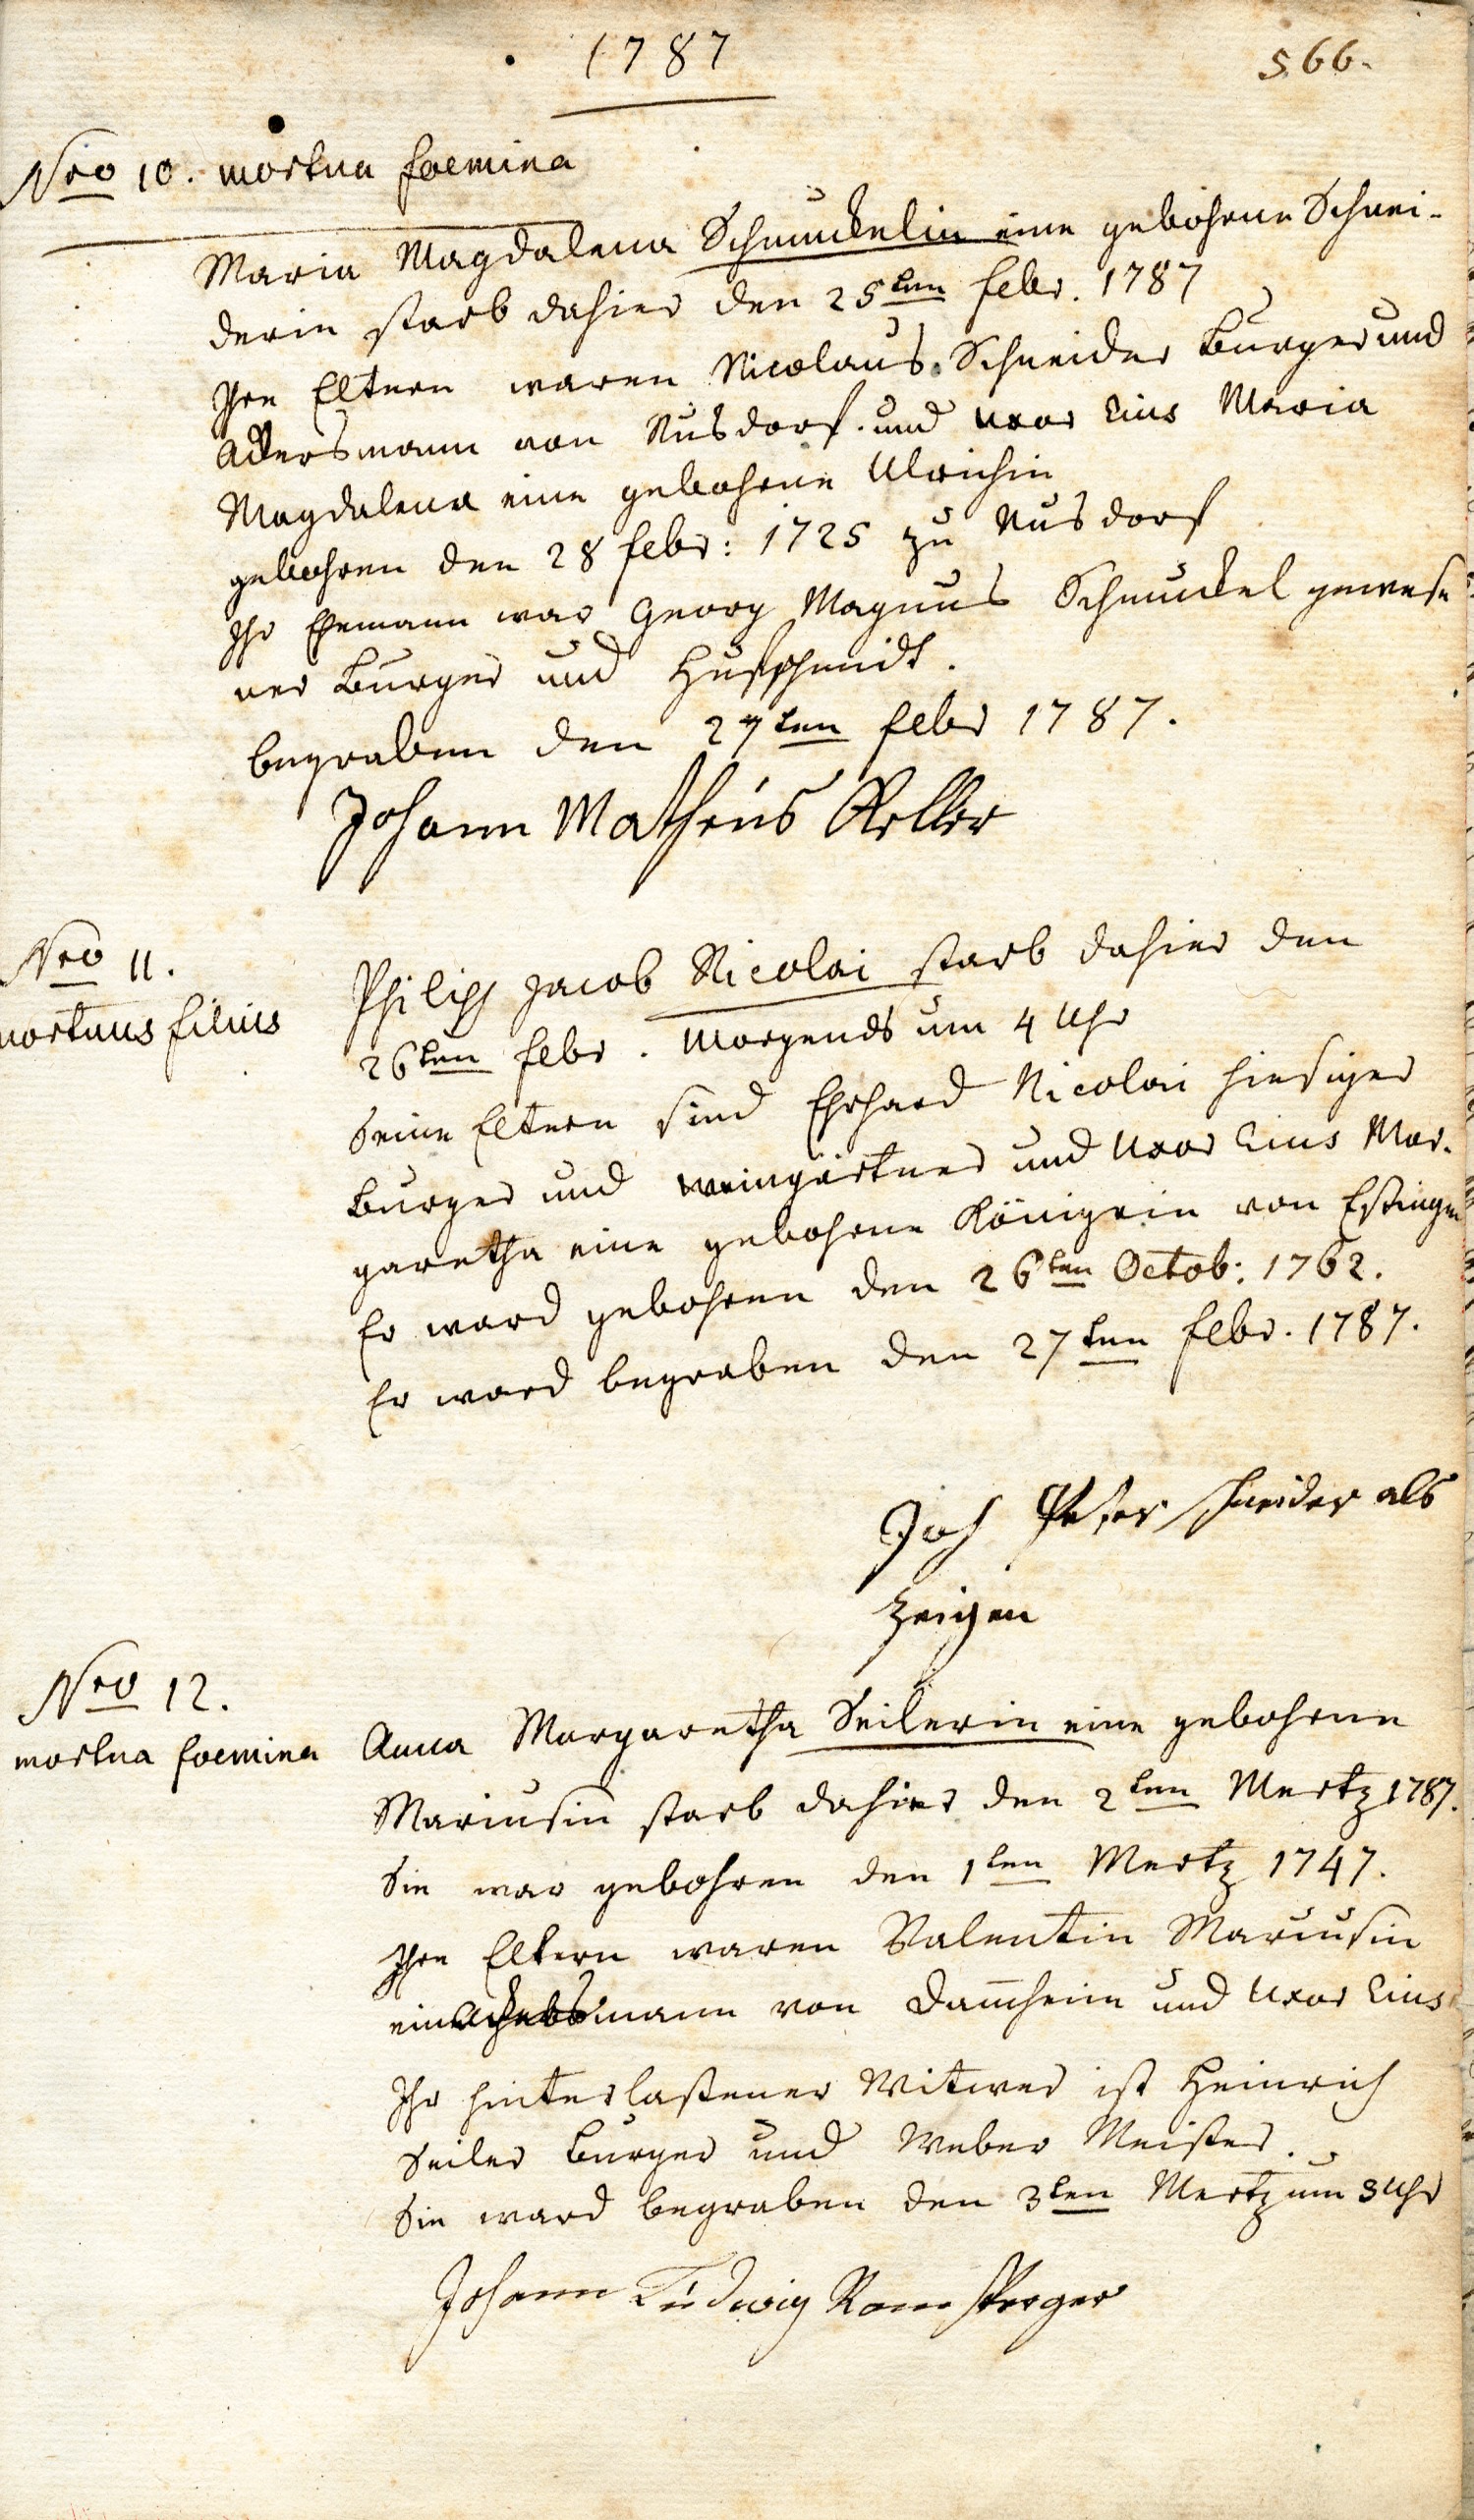 1787
566.
Nro 10. mortua foemina
Maria Magdalena Schmuckelin eine gebohrne Schnei-
derin starb dahier den 25ten febr. 1787
Ihre Eltern waren Nicolaus Schneider Burger und
Ackersmann von Nusdorf. und uxor Eius Maria
Magdalena eine gebohrne Ulrichin
gebohren den 28 febr: 1725 zu Nusdorf
Ihr Ehemann war Georg Magnus Schmuckel gewese
ner Burger und Hufschmidt.
begraben den 27ten febr 1787.
Johann Matheus Keller
Nro 11.
mortuus filius
Philipp Jacob Nicolai starb dahier den
26ten febr. Morgends um 4 Uhr
Seine Eltern sind Ehrhard Nicolai hiesiger
Burger und Weingärtner und Uxor Eius Mar-
garetha eine gebohrne Königin von Eßingen
Er ward gebohren den 26ten Octob: 1762.
Er ward begraben den 27ten febr. 1787.
Joh Peter schneider als
Zeigen
Nro 12.
mortua foemina
Anna Margaretha Seilerin eine gebohrne
Mariusin starb dahier den 2ten Mertz 1787.
Sie war gebohren den 1ten Mertz 1747.
Ihre Eltern waren Valentin Mariusin
ein Ackersmann von Dam̅heim und Uxor Eius
Ihr hinterlaßener Witwer ist Heinrich
Seiler Burger und Weber Meister.
Sie ward begraben den 3ten Mertz um 3 Uhr
Johann Ludwig